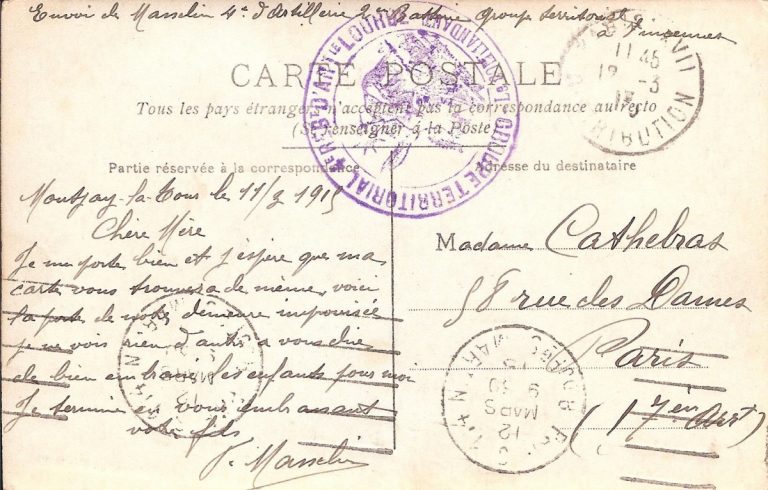 Envoi de Masselin 4e d'artillerie 2me Batterie Groupe territorial
à Vincennes
CARTE POSTALE
Tous les pays étrangers n'acceptent pas la correspondance au recto
(Se renseigner à la Poste)
Partie réservée à la correspondance
Adresse du destinataire
Montjay-la-Tour le 11/3 1915
Chère Mère
Je me porte bien et j'espère que ma
carte vous trouvera de même, voici
la porte de notre demeure improvisée
je ne vois rien d'autre a vous dire
de bien embrasser les enfants pour moi
Je termine en vous embrassant
votre fils
V. Masselin
Madame Cathebras
58 rue des Dames
Paris
(17em Arrt)
GROUPE TERRITORIAL
LOURD
XVII
DISTRIBUTION
11 45
12 - 3
15
12
MARS
9 30
15
MARS